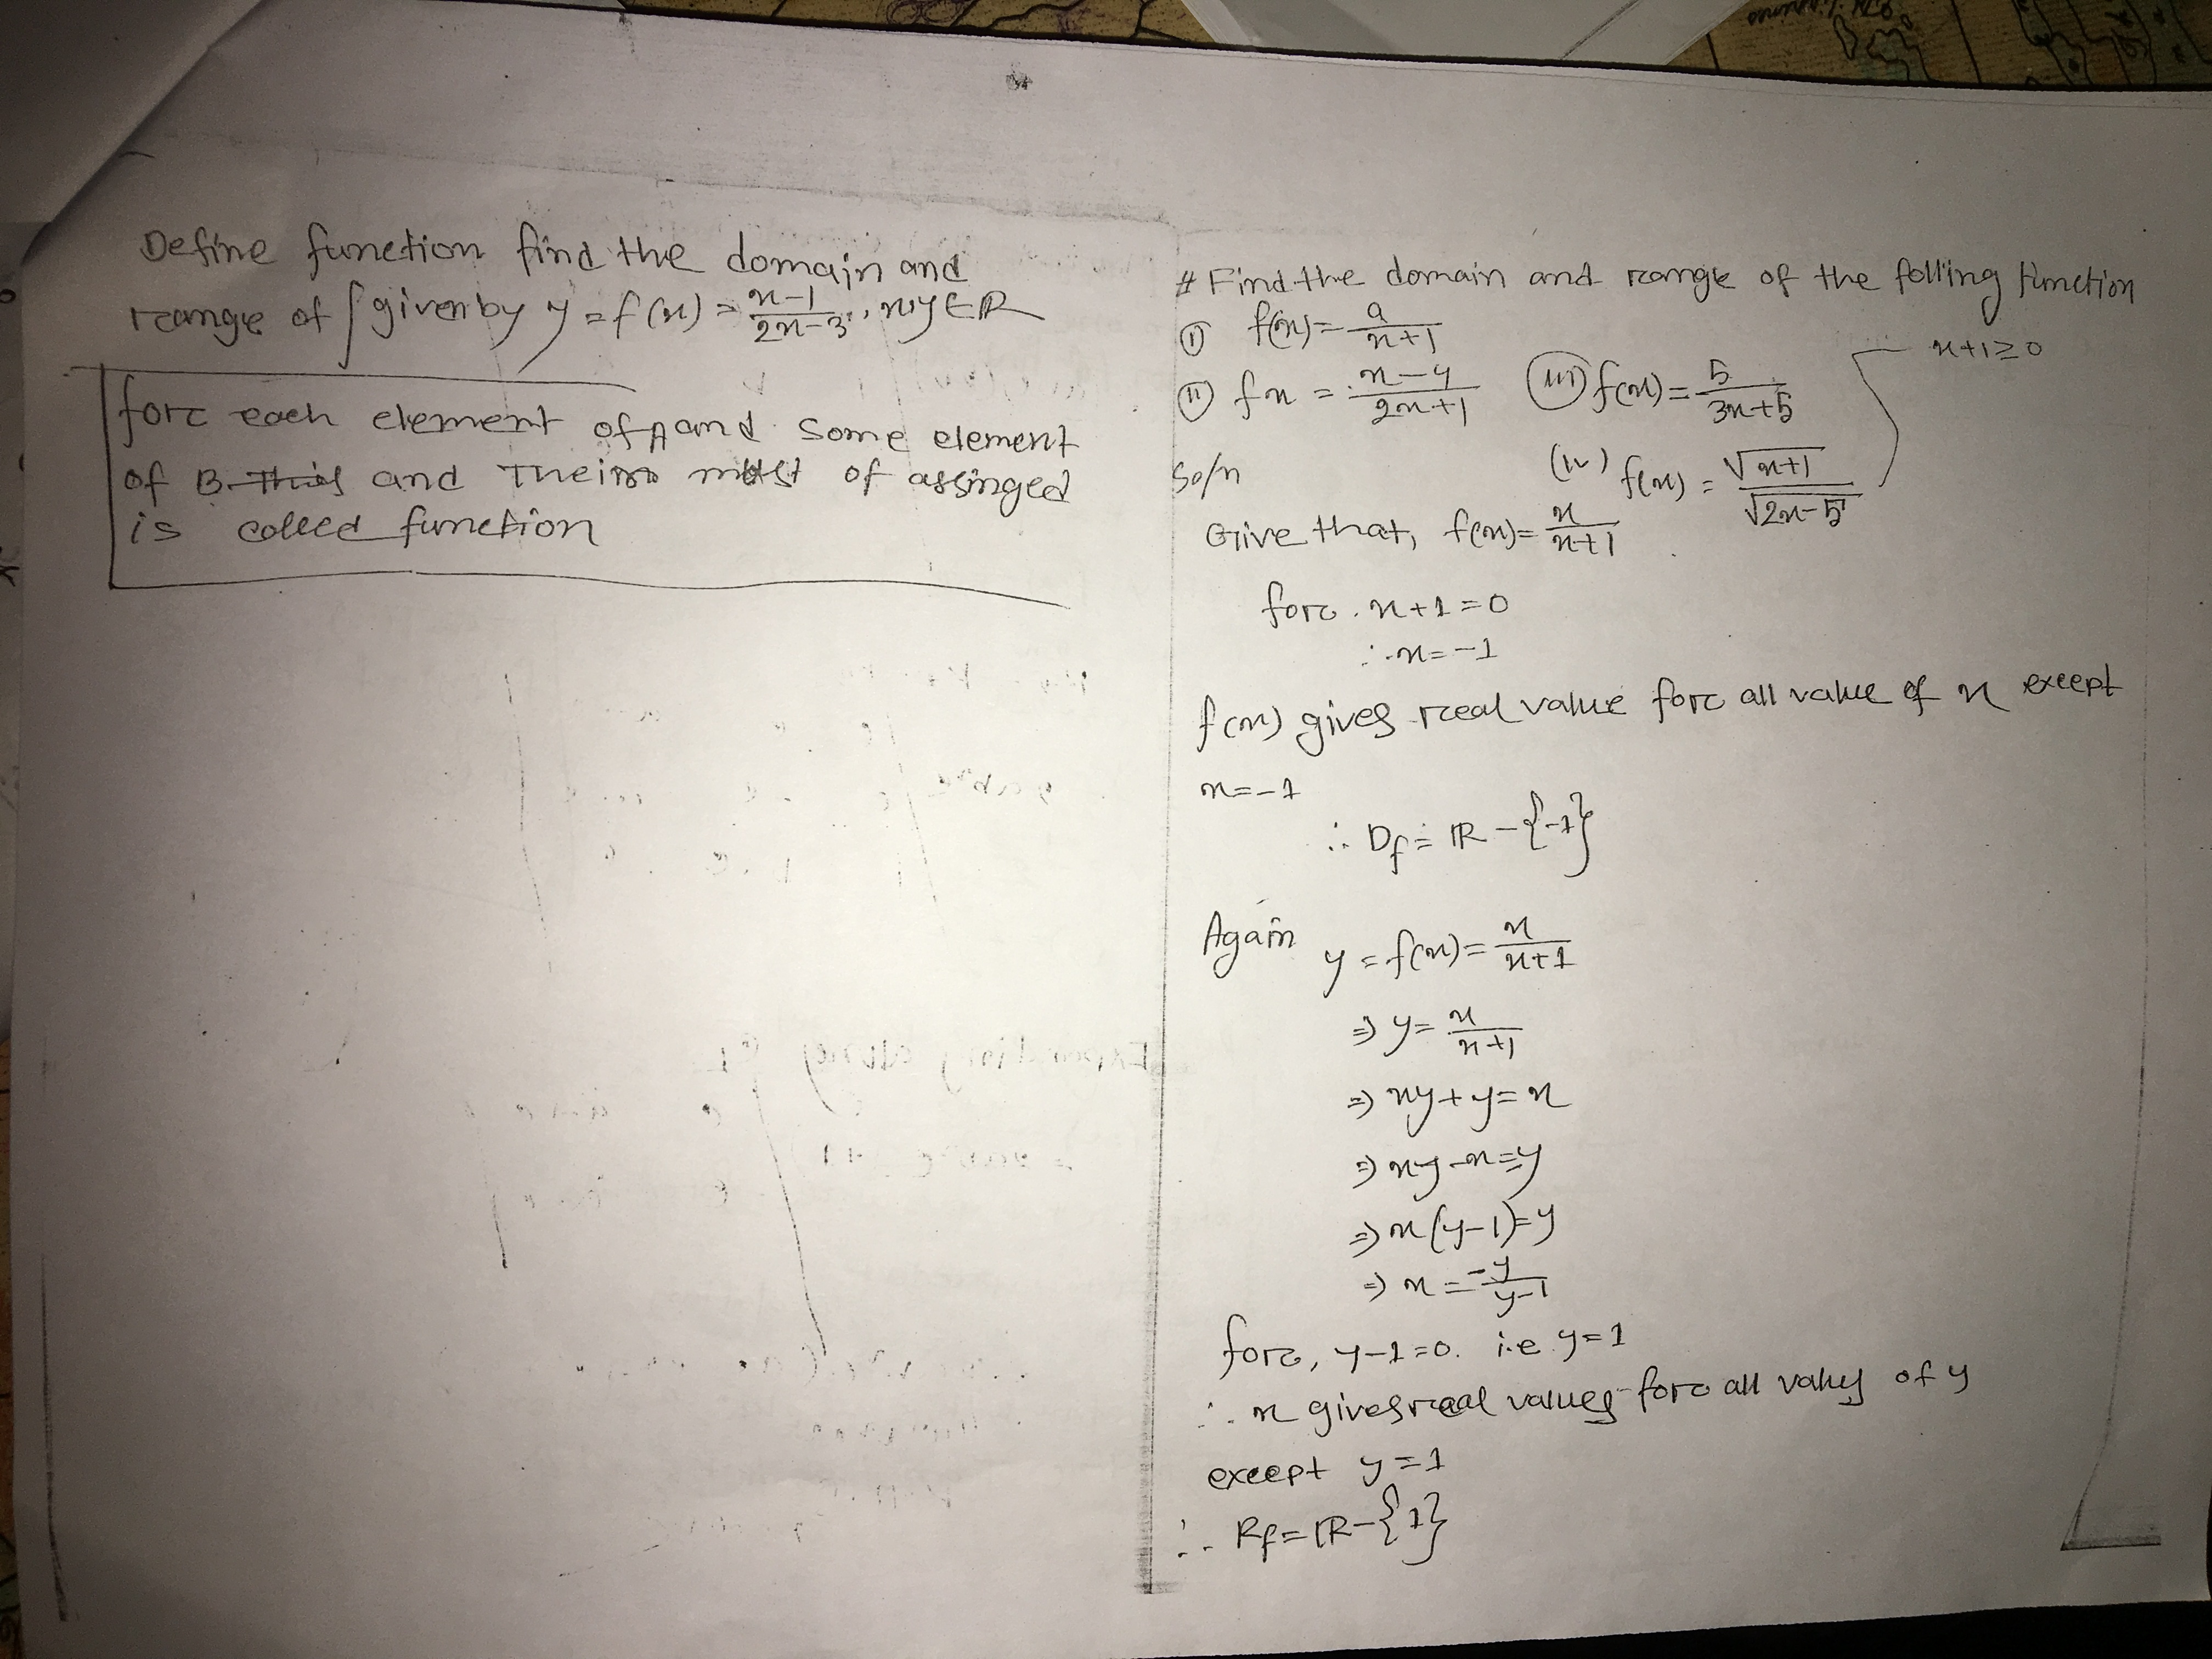 Define function find the domain and
range of f given by y = f(x) = x-1/2x-3, x,y ∈ ℝ
for each element of A and some element
of B and Their must of assinged
is called function
# Find the domain and range of the folling function
(i) f(x) = a/x+1
x+1≥0
(ii) fx = x-4/2x+1 (iii) f(x) = 5/3x+5
(iv) f(x) = √x+1/√2x-5
Soln
Give that, f(x) = x/x+1
for. x+1=0
∴ x=-1
f(x) gives real value for all value of x except
x=-1
∴ Df = ℝ - {-1}
Again y = f(x) = x/x+1
⇒ y = x/x+1
⇒ xy+y=x
⇒ xy-x=y
⇒ x(y-1)=y
⇒ x = -y/y-1
for, y-1=0. i.e y=1
∴ x gives real values for all valuy of y
except y=1
∴ Rf = ℝ - {1}